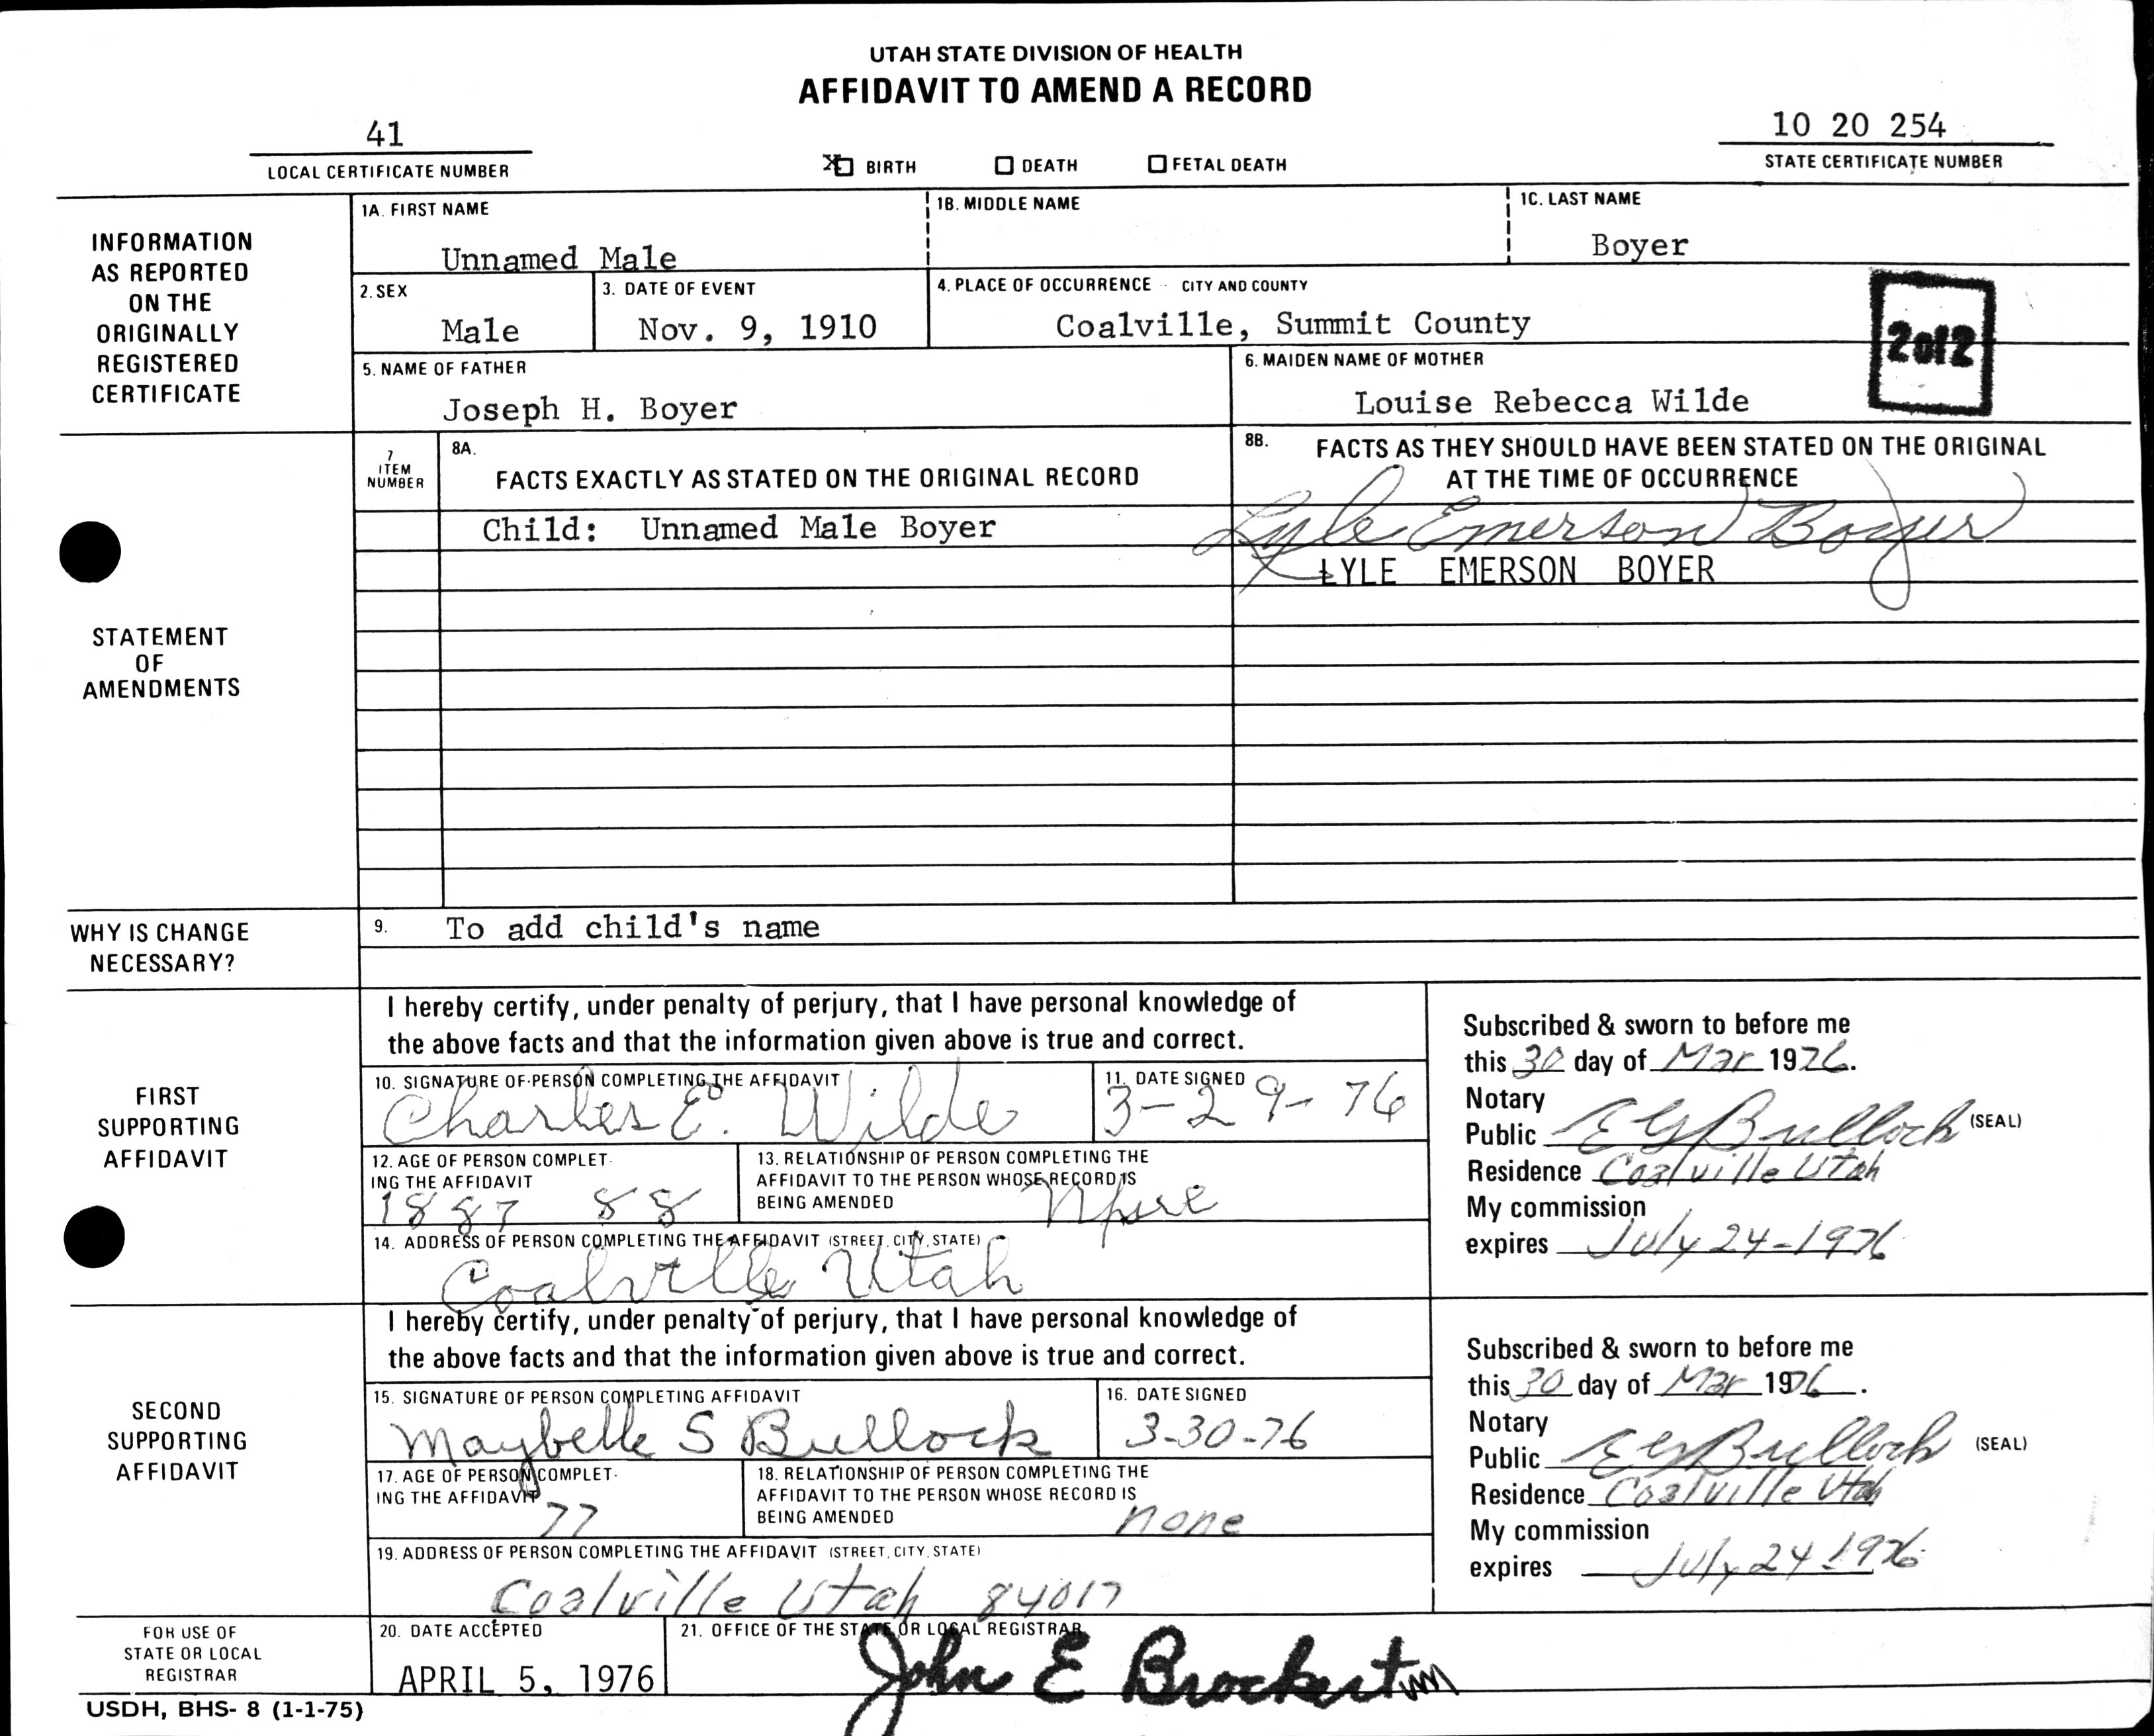 UTAH STATE DIVISION OF HEALTH
AFFIDAVIT TO AMEND A RECORD
41
LOCAL CERTIFICATE NUMBER
X BIRTH DEATH FETAL DEATH
10 20 254
STATE CERTIFICATE NUMBER
INFORMATION
AS REPORTED
ON THE
ORIGINALLY
REGISTERED
CERTIFICATE
1A. FIRST NAME
Unnamed Male
1B. MIDDLE NAME
1C. LAST NAME
Boyer
2. SEX
Male
3. DATE OF EVENT
Nov. 9, 1910
4. PLACE OF OCCURRENCE CITY AND COUNTY
Coalville, Summit County
2 of 2
5. NAME OF FATHER
Joseph H. Boyer
6. MAIDEN NAME OF MOTHER
Louise Rebecca Wilde
STATEMENT
OF
AMENDMENTS
7
ITEM
NUMBER
8A.
FACTS EXACTLY AS STATED ON THE ORIGINAL RECORD
8B. FACTS AS THEY SHOULD HAVE BEEN STATED ON THE ORIGINAL
AT THE TIME OF OCCURRENCE
Child: Unnamed Male Boyer
Lyle Emerson Boyer
LYLE EMERSON BOYER
WHY IS CHANGE
NECESSARY?
9. To add child's name
FIRST
SUPPORTING
AFFIDAVIT
I hereby certify, under penalty of perjury, that I have personal knowledge of
the above facts and that the information given above is true and correct.
10. SIGNATURE OF PERSON COMPLETING THE AFFIDAVIT
Charles E. Wilde
11. DATE SIGNED
3-29-76
12. AGE OF PERSON COMPLET-
ING THE AFFIDAVIT
1887 88
13. RELATIONSHIP OF PERSON COMPLETING THE
AFFIDAVIT TO THE PERSON WHOSE RECORD IS
BEING AMENDED
14. ADDRESS OF PERSON COMPLETING THE AFFIDAVIT (STREET, CITY, STATE)
Coalville Utah
Subscribed & sworn to before me
this 30 day of Mar 1976.
Notary
Public E G Bullock (SEAL)
Residence Coalville Utah
My commission
expires July 24-1976
SECOND
SUPPORTING
AFFIDAVIT
I hereby certify, under penalty of perjury, that I have personal knowledge of
the above facts and that the information given above is true and correct.
15. SIGNATURE OF PERSON COMPLETING AFFIDAVIT
Maybelle S Bullock
16. DATE SIGNED
3-30-76
17. AGE OF PERSON COMPLET-
ING THE AFFIDAVIT
77
18. RELATIONSHIP OF PERSON COMPLETING THE
AFFIDAVIT TO THE PERSON WHOSE RECORD IS
BEING AMENDED
none
19. ADDRESS OF PERSON COMPLETING THE AFFIDAVIT (STREET, CITY, STATE)
Coalville Utah 84017
Subscribed & sworn to before me
this 30 day of Mar 1976.
Notary
Public E G Bullock (SEAL)
Residence Coalville Utah
My commission
expires July 24 1976
FOR USE OF
STATE OR LOCAL
REGISTRAR
20. DATE ACCEPTED
APRIL 5, 1976
21. OFFICE OF THE STATE OR LOCAL REGISTRAR
John E Brockert
USDH, BHS- 8 (1-1-75)